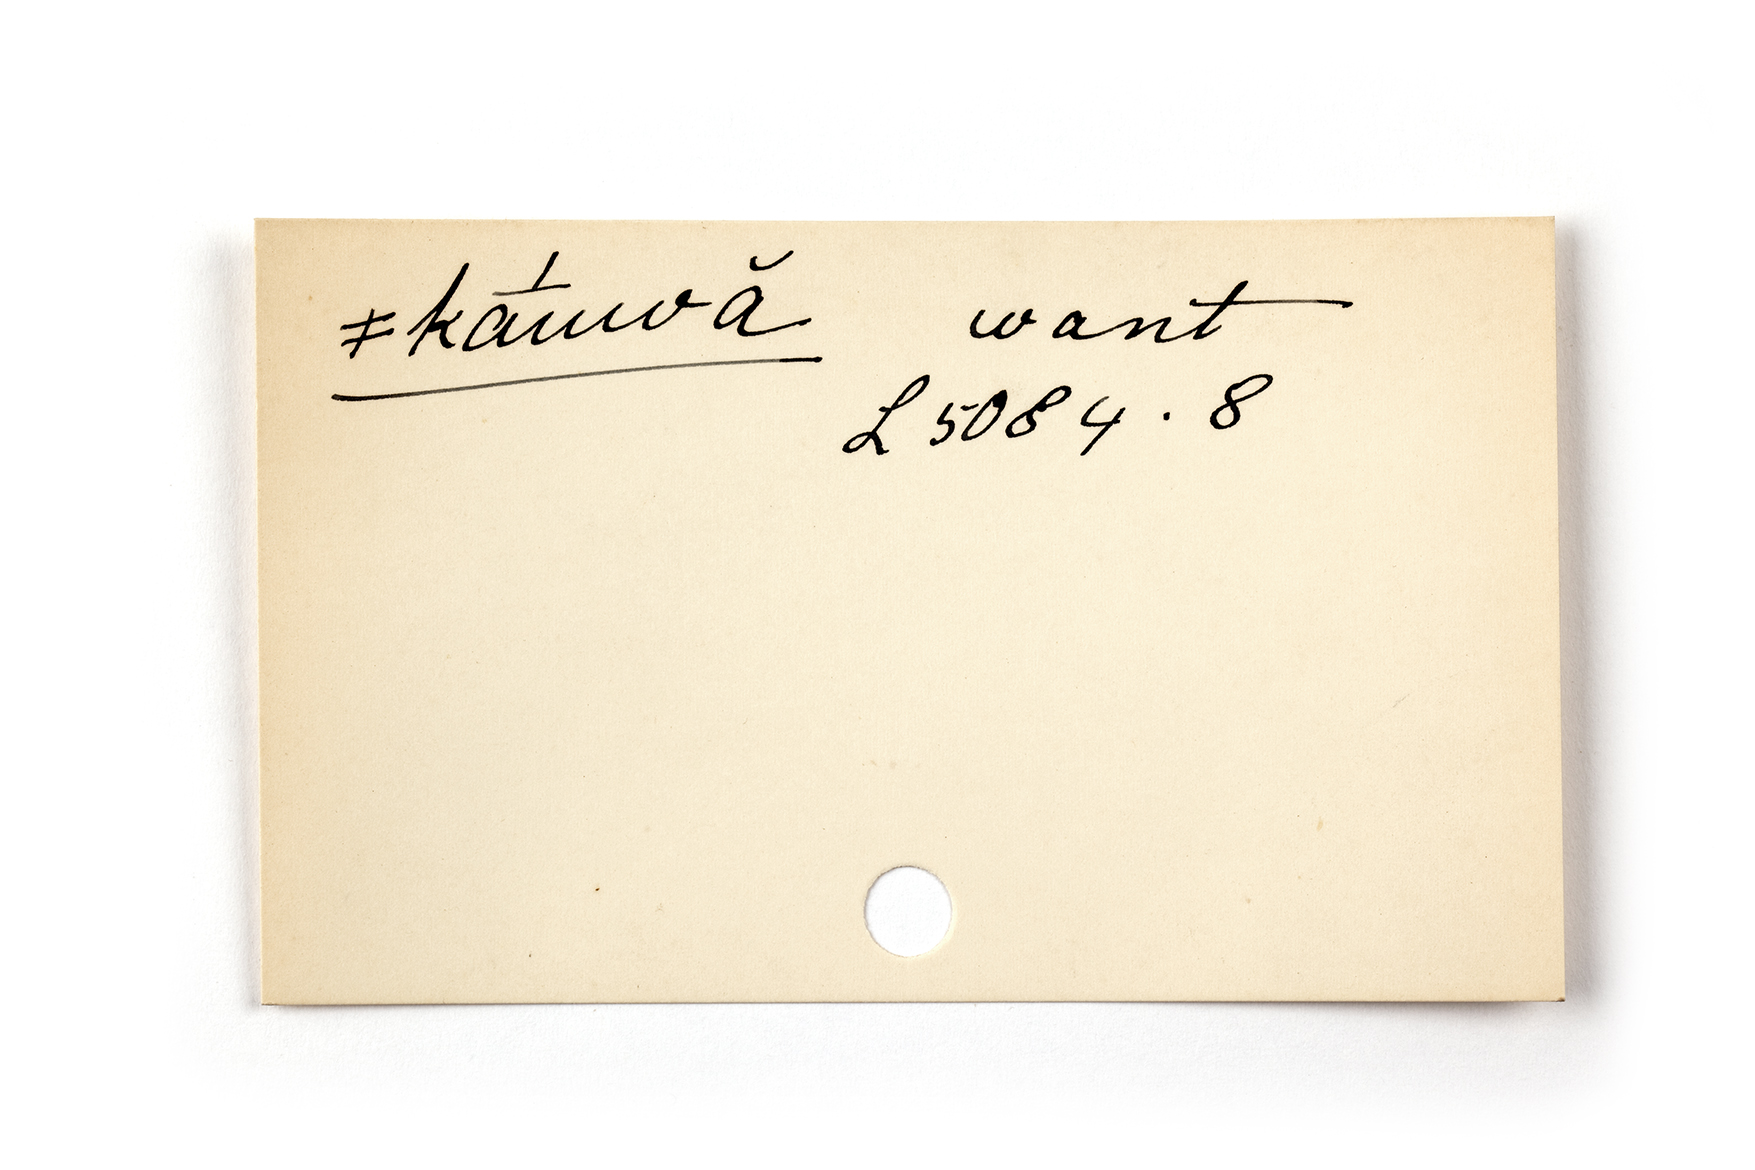 ǂkā́uwă want
L 5084 . 8